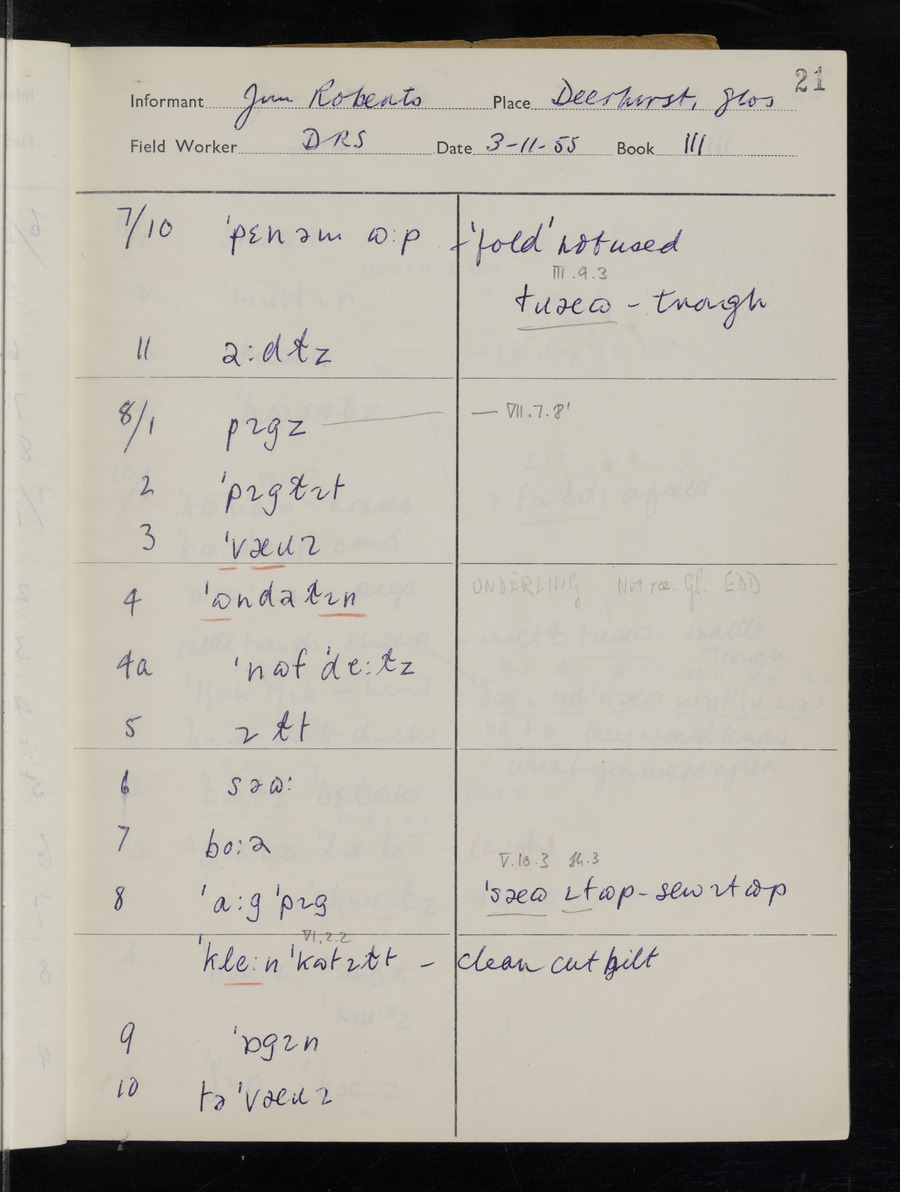 21
Informant Jim Roberts Place Deerhurst, Glos
Field Worker DRS Date 3-11-55 Book III
7/10 ˈpɛnəm ɷ:p - 'fold' not used
III.9.3
tɹəɷ - trough
11 ə:dɫz
8/1 pɪgz — VII.7.8'
2 ˈpɪgɫɪt
3 ˈvæɹɪ
4 ˈɷndəɫɪn UNDERLING Not rec. Gl. EDD
4a ˈnɷf ˈde:ɫz
5 ɪɫt
6 səɷ:
7 bo:ə
V.10.3 sh.3
8 ˈa:g ˈpɪg ˈsæɷ ɪtɷp - sew it up
VI.2.2
ˈkle:n ˈkɷtɪɫt - clean cut gilt
9 ˈɒgɪn
10 tə ˈvæɹɪ